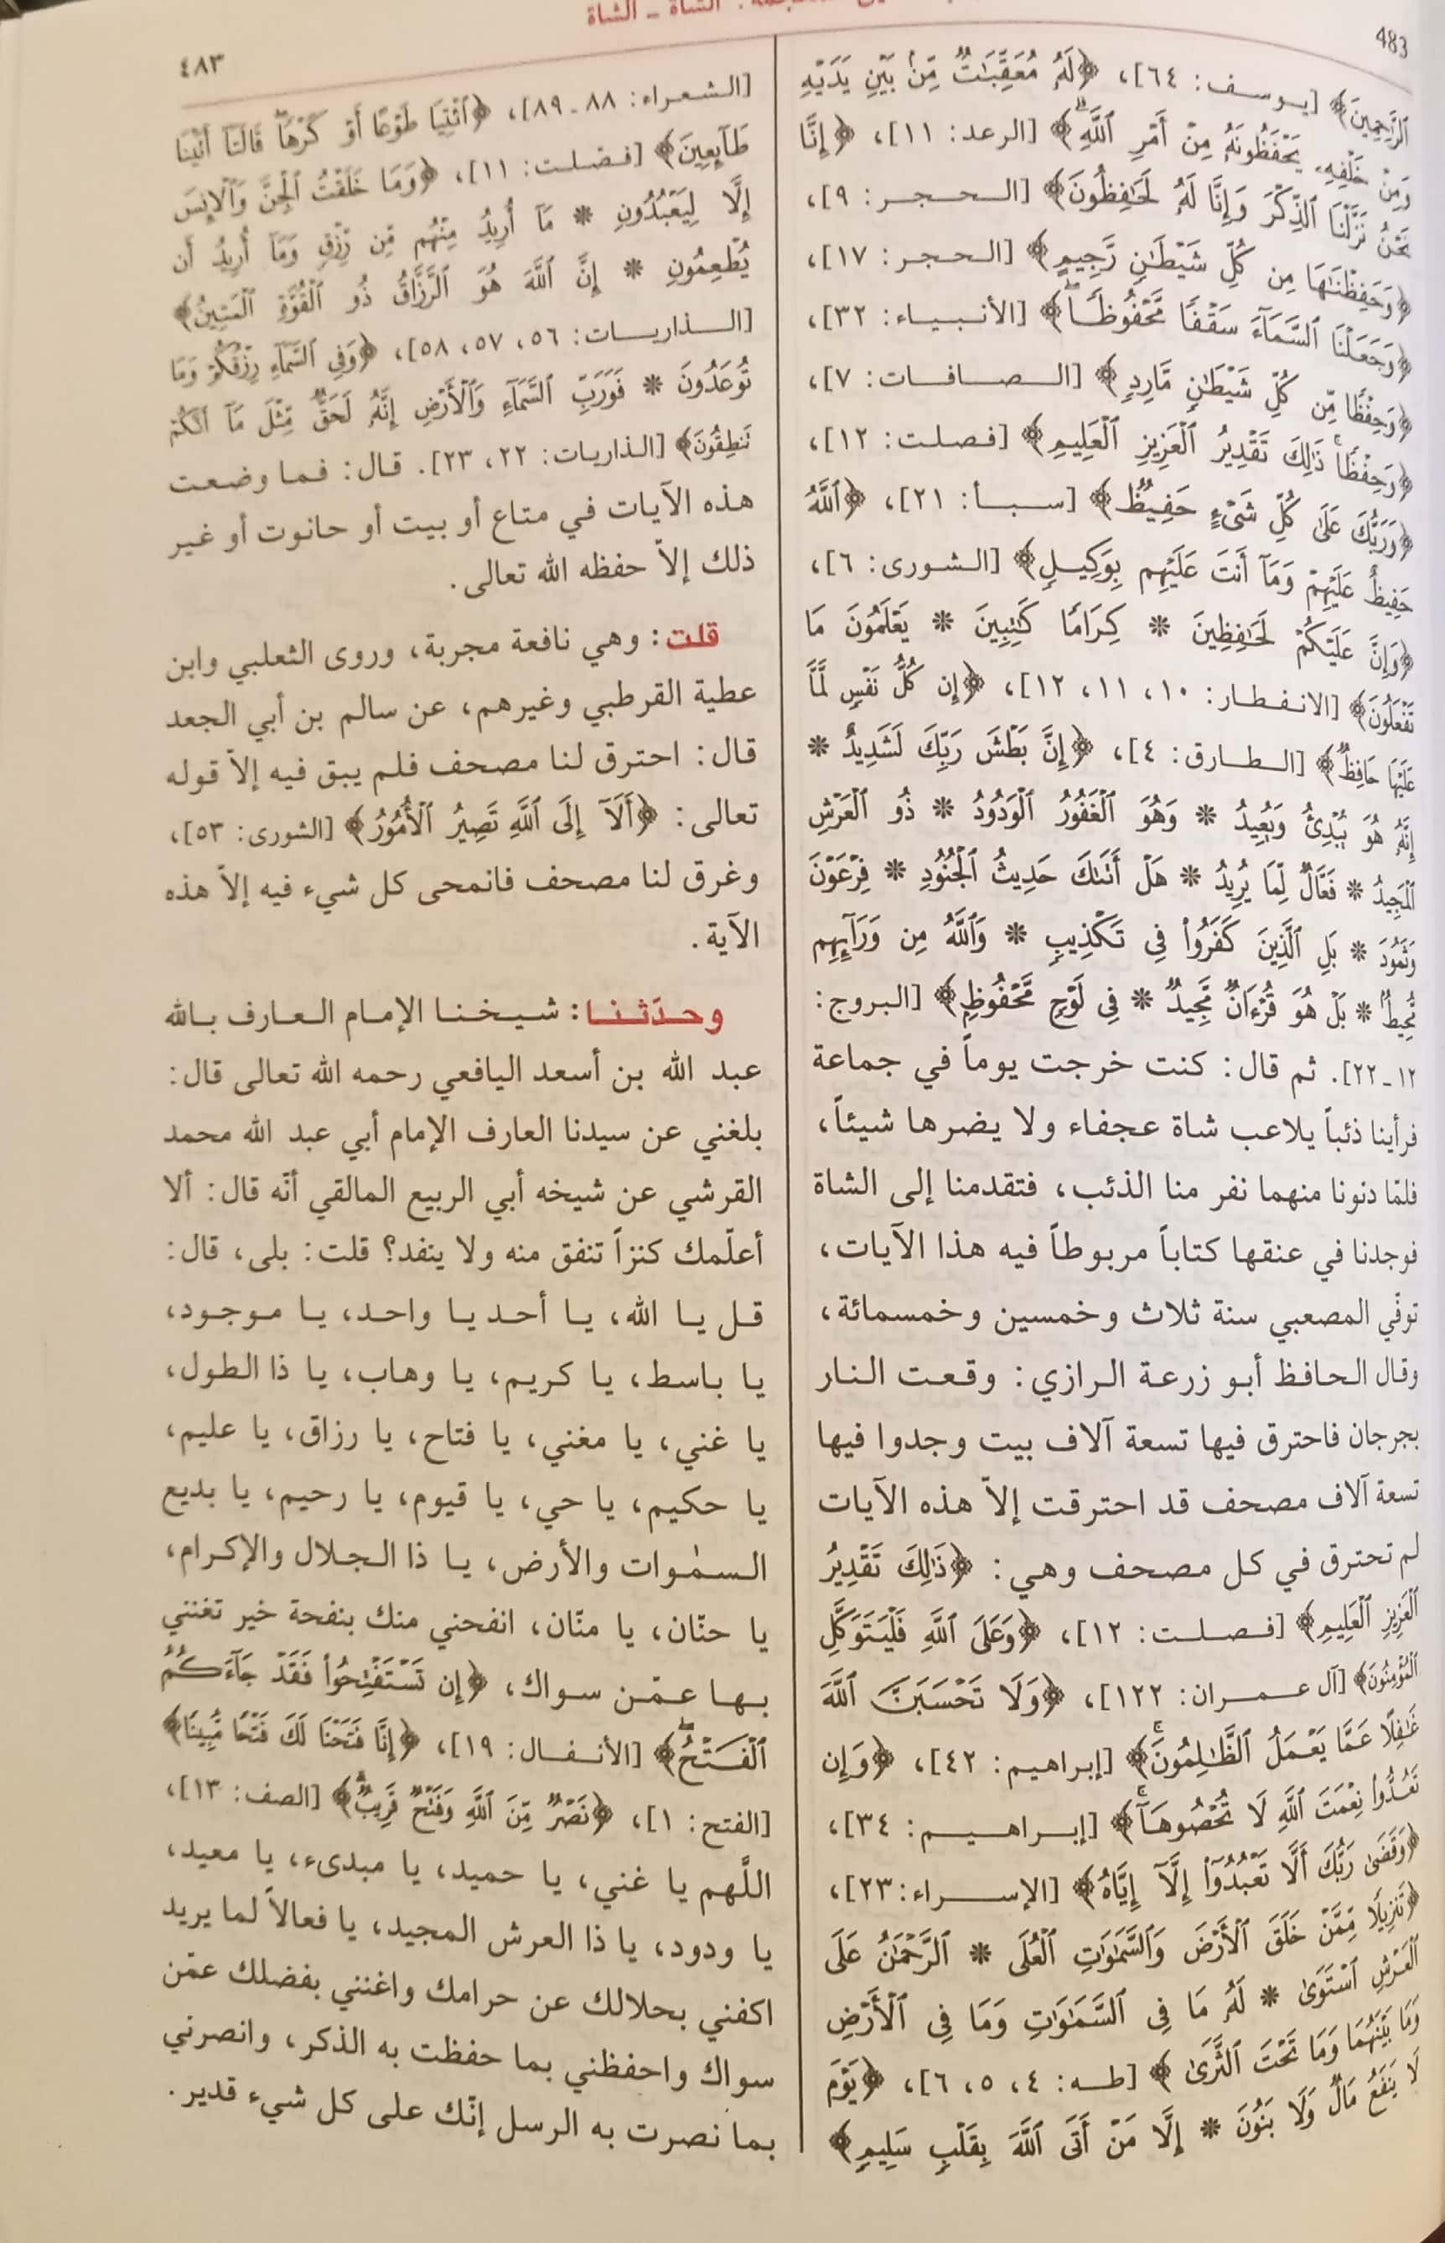 الشاة ـ الشاة
483
٤٨٣
ٱلرَّٰحِمِينَ﴾ [يوسف: ٦٤]، ﴿لَهُۥ مُعَقِّبَٰتٌ مِّنۢ بَيْنِ يَدَيْهِ
وَمِنْ خَلْفِهِۦ يَحْفَظُونَهُۥ مِنْ أَمْرِ ٱللَّهِ﴾ [الرعد: ١١]، ﴿إِنَّا
نَحْنُ نَزَّلْنَا ٱلذِّكْرَ وَإِنَّا لَهُۥ لَحَٰفِظُونَ﴾ [الحجر: ٩]،
﴿وَحَفِظْنَٰهَا مِن كُلِّ شَيْطَٰنٍ رَّجِيمٍ﴾ [الحجر: ١٧]،
﴿وَجَعَلْنَا ٱلسَّمَآءَ سَقْفًا مَّحْفُوظًا﴾ [الأنبياء: ٣٢]،
﴿وَحِفْظًا مِّن كُلِّ شَيْطَٰنٍ مَّارِدٍ﴾ [الصافات: ٧]،
﴿وَحِفْظًا ذَٰلِكَ تَقْدِيرُ ٱلْعَزِيزِ ٱلْعَلِيمِ﴾ [فصلت: ١٢]،
﴿وَرَبُّكَ عَلَىٰ كُلِّ شَىْءٍ حَفِيظٌ﴾ [سبأ: ٢١]، ﴿ٱللَّهُ
حَفِيظٌ عَلَيْهِمْ وَمَآ أَنتَ عَلَيْهِم بِوَكِيلٍ﴾ [الشورى: ٦]،
﴿وَإِنَّ عَلَيْكُمْ لَحَٰفِظِينَ * كِرَامًا كَٰتِبِينَ * يَعْلَمُونَ مَا
تَفْعَلُونَ﴾ [الانفطار: ١٠، ١١، ١٢]، ﴿إِن كُلُّ نَفْسٍ لَّمَّا
عَلَيْهَا حَافِظٌ﴾ [الطارق: ٤]، ﴿إِنَّ بَطْشَ رَبِّكَ لَشَدِيدٌ *
إِنَّهُۥ هُوَ يُبْدِئُ وَيُعِيدُ * وَهُوَ ٱلْغَفُورُ ٱلْوَدُودُ * ذُو ٱلْعَرْشِ
ٱلْمَجِيدُ * فَعَّالٌ لِّمَا يُرِيدُ * هَلْ أَتَىٰكَ حَدِيثُ ٱلْجُنُودِ * فِرْعَوْنَ
وَثَمُودَ * بَلِ ٱلَّذِينَ كَفَرُوا۟ فِى تَكْذِيبٍ * وَٱللَّهُ مِن وَرَآئِهِم
مُّحِيطٌ * بَلْ هُوَ قُرْءَانٌ مَّجِيدٌ * فِى لَوْحٍ مَّحْفُوظٍ﴾ [البروج:
١٢ـ٢٢]. ثم قال: كنت خرجت يوماً في جماعة
فرأينا ذئباً يلاعب شاة عجفاء ولا يضرها شيئاً،
فلمّا دنونا منهما نفر منا الذئب، فتقدمنا إلى الشاة
فوجدنا في عنقها كتاباً مربوطاً فيه هذا الآيات،
توفّي المصعبي سنة ثلاث وخمسين وخمسمائة،
وقال الحافظ أبو زرعة الرازي: وقعت النار
بجرجان فاحترق فيها تسعة آلاف بيت وجدوا فيها
تسعة آلاف مصحف قد احترقت إلاّ هذه الآيات
لم تحترق في كل مصحف وهي: ﴿ذَٰلِكَ تَقْدِيرُ
ٱلْعَزِيزِ ٱلْعَلِيمِ﴾ [فصلت: ١٢]، ﴿وَعَلَى ٱللَّهِ فَلْيَتَوَكَّلِ
ٱلْمُؤْمِنُونَ﴾ [آل عمران: ١٢٢]، ﴿وَلَا تَحْسَبَنَّ ٱللَّهَ
غَٰفِلًا عَمَّا يَعْمَلُ ٱلظَّٰلِمُونَ﴾ [إبراهيم: ٤٢]، ﴿وَإِن
تَعُدُّوا۟ نِعْمَتَ ٱللَّهِ لَا تُحْصُوهَآ﴾ [إبراهيم: ٣٤]،
﴿وَقَضَىٰ رَبُّكَ أَلَّا تَعْبُدُوٓا۟ إِلَّآ إِيَّاهُ﴾ [الإسراء: ٢٣]،
﴿تَنزِيلًا مِّمَّنْ خَلَقَ ٱلْأَرْضَ وَٱلسَّمَٰوَٰتِ ٱلْعُلَى * ٱلرَّحْمَٰنُ عَلَى
ٱلْعَرْشِ ٱسْتَوَىٰ * لَهُۥ مَا فِى ٱلسَّمَٰوَٰتِ وَمَا فِى ٱلْأَرْضِ
وَمَا بَيْنَهُمَا وَمَا تَحْتَ ٱلثَّرَىٰ﴾ [طه: ٤، ٥، ٦]، ﴿يَوْمَ
لَا يَنفَعُ مَالٌ وَلَا بَنُونَ * إِلَّا مَنْ أَتَى ٱللَّهَ بِقَلْبٍ سَلِيمٍ﴾
[الشعراء: ٨٨ـ٨٩]، ﴿ٱئْتِيَا طَوْعًا أَوْ كَرْهًا قَالَتَآ أَتَيْنَا
طَآئِعِينَ﴾ [فصلت: ١١]، ﴿وَمَا خَلَقْتُ ٱلْجِنَّ وَٱلْإِنسَ
إِلَّا لِيَعْبُدُونِ * مَآ أُرِيدُ مِنْهُم مِّن رِّزْقٍ وَمَآ أُرِيدُ أَن
يُطْعِمُونِ * إِنَّ ٱللَّهَ هُوَ ٱلرَّزَّاقُ ذُو ٱلْقُوَّةِ ٱلْمَتِينُ﴾
[الذاريات: ٥٦، ٥٧، ٥٨]، ﴿وَفِى ٱلسَّمَآءِ رِزْقُكُمْ وَمَا
تُوعَدُونَ * فَوَرَبِّ ٱلسَّمَآءِ وَٱلْأَرْضِ إِنَّهُۥ لَحَقٌّ مِّثْلَ مَآ أَنَّكُمْ
تَنطِقُونَ﴾ [الذاريات: ٢٢، ٢٣]. قال: فما وضعت
هذه الآيات في متاع أو بيت أو حانوت أو غير
ذلك إلاّ حفظه الله تعالى.
قلت: وهي نافعة مجربة، وروى الثعلبي وابن
عطية القرطبي وغيرهم، عن سالم بن أبي الجعد
قال: احترق لنا مصحف فلم يبق فيه إلاّ قوله
تعالى: ﴿أَلَآ إِلَى ٱللَّهِ تَصِيرُ ٱلْأُمُورُ﴾ [الشورى: ٥٣]،
وغرق لنا مصحف فانمحى كل شيء فيه إلاّ هذه
الآية.
وحدّثنا: شيخنا الإمام العارف بالله
عبد الله بن أسعد اليافعي رحمه الله تعالى قال:
بلغني عن سيدنا العارف الإمام أبي عبد الله محمد
القرشي عن شيخه أبي الربيع المالقي أنّه قال: ألا
أعلّمك كنزاً تنفق منه ولا ينفد؟ قلت: بلى، قال:
قل يا الله، يا أحد يا واحد، يا موجود،
يا باسط، يا كريم، يا وهاب، يا ذا الطول،
يا غني، يا مغني، يا فتاح، يا رزاق، يا عليم،
يا حكيم، يا حي، يا قيوم، يا رحيم، يا بديع
السمٰوات والأرض، يا ذا الجلال والإكرام،
يا حنّان، يا منّان، انفحني منك بنفحة خير تغنني
بها عمّن سواك، ﴿إِن تَسْتَفْتِحُوا۟ فَقَدْ جَآءَكُمُ
ٱلْفَتْحُ﴾ [الأنفال: ١٩]، ﴿إِنَّا فَتَحْنَا لَكَ فَتْحًا مُّبِينًا﴾
[الفتح: ١]، ﴿نَصْرٌ مِّنَ ٱللَّهِ وَفَتْحٌ قَرِيبٌ﴾ [الصف: ١٣]،
اللَّهم يا غني، يا حميد، يا مبدىء، يا معيد،
يا ودود، يا ذا العرش المجيد، يا فعالاً لما يريد
اكفني بحلالك عن حرامك واغنني بفضلك عمّن
سواك واحفظني بما حفظت به الذكر، وانصرني
بما نصرت به الرسل إنّك على كل شيء قدير.